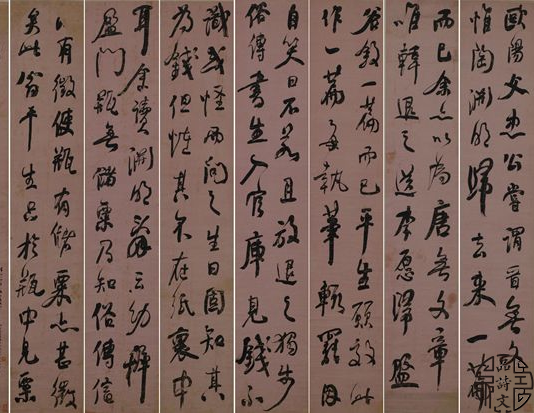 歐陽文忠公嘗謂晉無文
惟陶淵明歸去來一篇
而已余亦以為唐無文章
唯韓退之送李愿歸盤
谷敘一篇而已平生願效此
作一篇每執筆輒罷因
自笑曰不若且放退之獨步
俗傳書生入官庫見錢不
識或怪而問之生曰固知其
為錢但怪其不在紙裹中
耳余讀淵明辭云幼稚
盈門瓶無儲粟乃知俗傳信
有徵使瓶有儲粟亦甚微
矣此翁平生只於瓶中見粟
品詩文